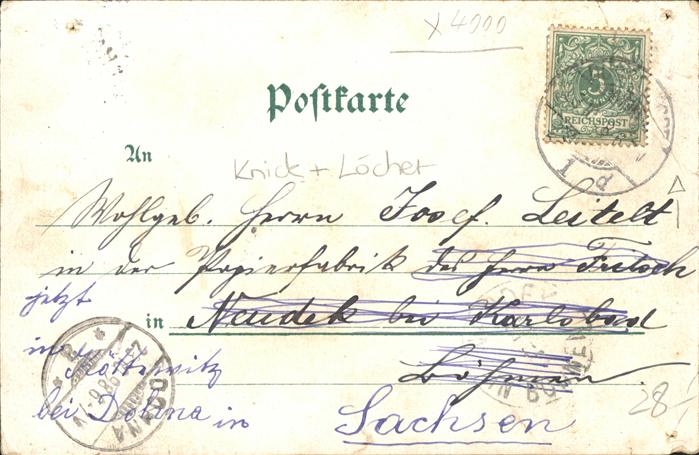 x 4000
5
REICHSPOST
Postkarte
An
Knick + Löcher
Wohlgeb. Herrn Josef Leitelt
in der Papierfabrik des Herrn Fritsch
jetzt
in Neudek bei Karlsbad
in Köttewitz
Böhmen.
bei Dohna in Sachsen
DOHNA
28.-